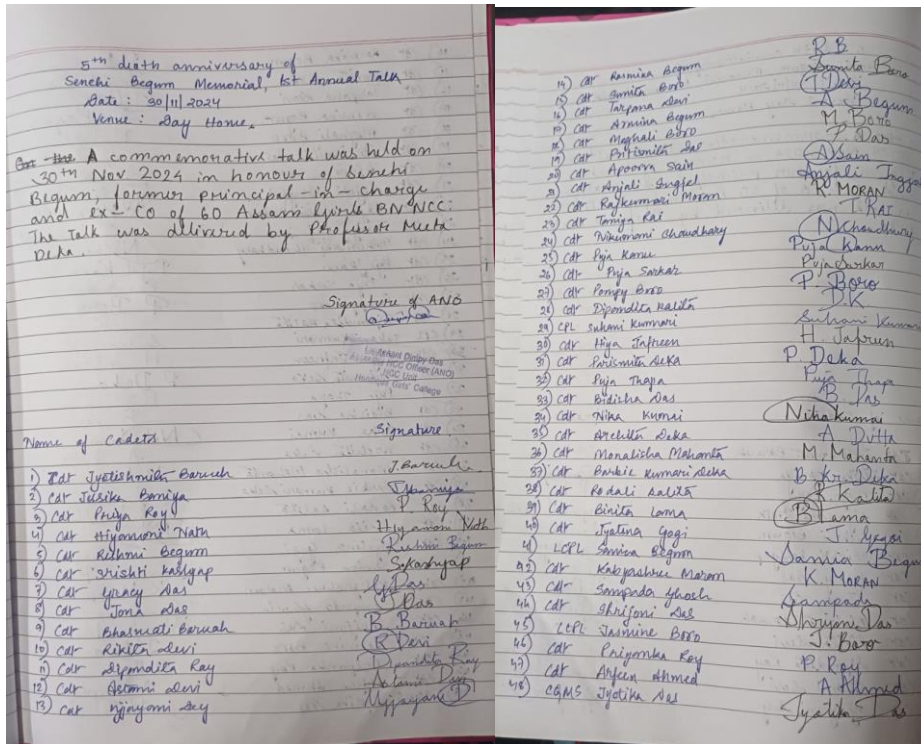 5th death anniversary of
Senehi Begum Memorial, 1st Annual Talk
Date : 30/11/2024
Venue : Day Home.
A commemorative talk was held on
30th Nov 2024 in honour of Senehi
Begum, former principal-in-charge
and ex-CO of 60 Assam Girls BN NCC.
The Talk was delivered by Professor Meeta
Deka.
Signature of ANO
Lieutenant Dimpy Das
Associate NCC Officer (ANO)
NCC Unit
Handique Girls' College
Name of Cadets Signature
1) Cdt Jyotishmita Baruah J. Baruah
2) Cdt Jesika Boniya
3) Cdt Priya Roy P. Roy
4) Cdt Hiyamoni Nath Hiyamoni Nath
5) Cdt Rishmi Begum Rishmi Begum
6) Cdt Srishti Kashyap S. Kashyap
7) Cdt Gracy Das G Das
8) Cdt Jona Das J Das
9) Cdt Bhaswati Baruah B. Baruah
10) Cdt Rikita Devi R Devi
11) Cdt Dipondita Ray Dipondita Ray
12) Cdt Astami Devi Astami Devi
13) Cdt Dey
14) Cdt Rasmina Begum R B
15) Cdt Sunita Boro Sunita Boro
16) Cdt Tarpana Devi T Devi
17) Cdt Armina Begum A Begum
18) Cdt Maghali Boro M. Boro
19) Cdt Pritismita Das P. Das
20) Cdt Apoorva Sain A Sain
21) Cdt Anjali Ingjel Anjali
22) Cdt Rajkumari Moran R. MORAN
23) Cdt Taniya Rai T. RAI
24) Cdt Nikumoni Choudhary N Choudhury
25) Cdt Puja Kanu Puja Kanu
26) Cdt Puja Sarkar Puja Sarkar
27) Cdt Pompy Boro P. Boro
28) Cdt Dipondita Kalita D.K
29) CPL Suhani Kumari Suhani Kumari
30) Cdt Hiya Jafreen H. Jafreen
31) Cdt Parismita Deka P. Deka
32) Cdt Puja Thapa Puja Thapa
33) Cdt Bidisha Das B. Das
34) Cdt Niha Kumai Niha Kumai
35) Cdt Archita Deka A Dutta
36) Cdt Monalisha Mahanta M. Mahanta
37) Cdt Barbie Kumari Deka B. Kr. Deka
38) Cdt Rodali Kalita R Kalita
39) Cdt Binita Lama B Lama
40) Cdt Jyotina Gogi J. Gogoi
41) LCPL Samia Begum Samia Begum
42) Cdt Kabyashree Moran K. MORAN
43) Cdt Sampada Ghosh Sampada
44) Cdt Shrijoni Das Shrijoni Das
45) LCPL Jasmine Boro J. Boro
46) Cdt Priyanka Roy P. Roy
47) Cdt Arfeen Ahmed A Ahmed
48) CQMS Jyotika Das Jyotika Das